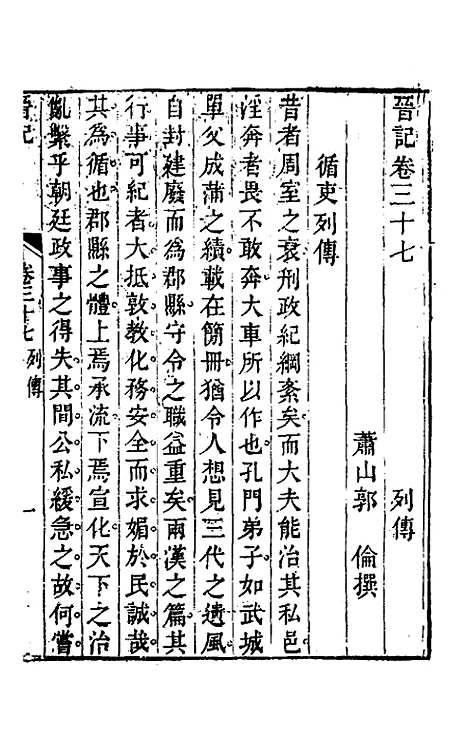 晉記卷三十七　列傳
蕭山郭　倫撰
循吏列傳
昔者周室之衰刑政紀綱紊矣而大夫能治其私邑
淫奔者畏不敢奔大車所以作也孔門弟子如武城
單父成蒲之績載在簡冊猶令人想見三代之遺風
自封建廢而為郡縣守令之職益重矣兩漢之篇其
行事可紀者大抵敦教化務安全而求媚於民誠哉
其為循也郡縣之體上焉承流下焉宣化天下之治
亂繫乎朝廷政事之得失其間公私緩急之故何嘗
晉記
卷三十七　列傳
一